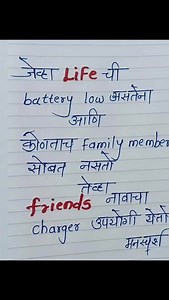 जेव्हा Life ची
battery low असतेना
आणि
कोणताच family member
सोबत नसतो
तेव्हा
friends नावाचा
charger उपयोगी येतो
मनस्पर्श